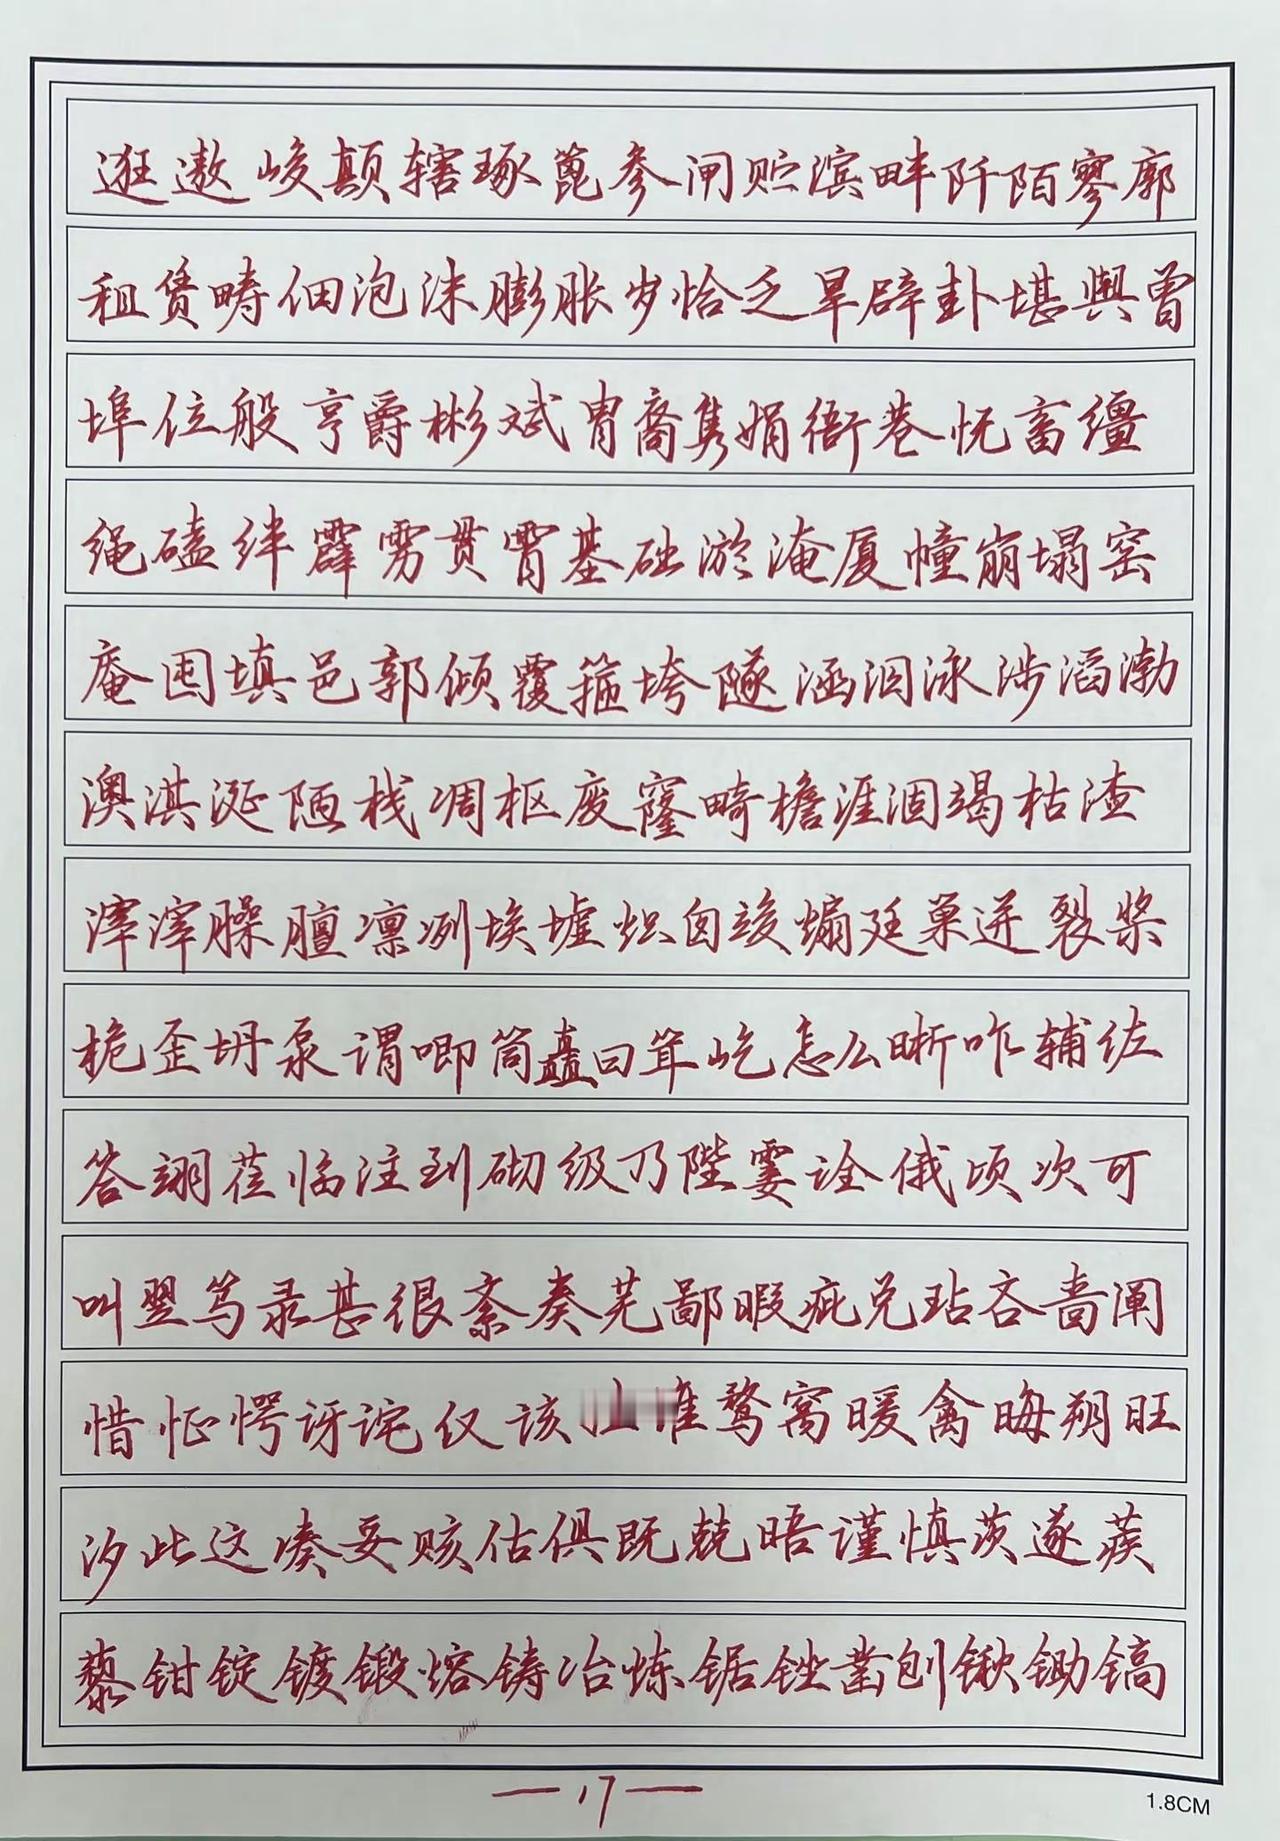 逛遨峻颠辖琢蓖参闸贮滨畔阡陌寥廓
租赁畴佃泡沫膨胀岁恰乏旱辟卦堪舆曾
埠位般亨爵彬斌胄裔隽娟衙巷恍畜缰
绳磕绊霹雳贯霄基础淤淹厦幢崩塌窑
庵囤填邑郭倾覆箍垮隧涵洄泳涉滔渤
澳淇涎陋栈凋枢废窿畸檐涯涸竭枯渣
滓滓臊膻凛冽埃墟炽囱竣煽廷巢迸裂桨
桅歪坍泵谓唧筒矗曰笕屹怎么晰咋辅佐
答翊莅临注到砌级乃陛霎诠俄顷次可
叫翌笃录甚很紊奏芜鄙暇疵兑玷吝啬阐
惜怔愕讶诧仅该谁鹜窝暖禽晦朔旺
汐此这凑妥赅估俱既兢晤谨慎茨遂蒺
藜钳锭镀锻熔铸冶炼锯锉凿刨锹锄镐
—17—
1.8CM